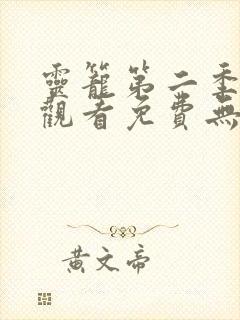 靈籠第二季
觀看免費無
黃文帝